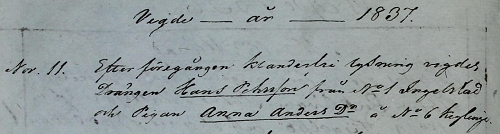 Vigde — år — 1837.
Nov. 11. Efter föregången klanderfri lysning vigdes
Drängen Hans Pehrsson från No 1 Ingelstad
och Pigan Anna Anders Dr å No 6 Keglinge